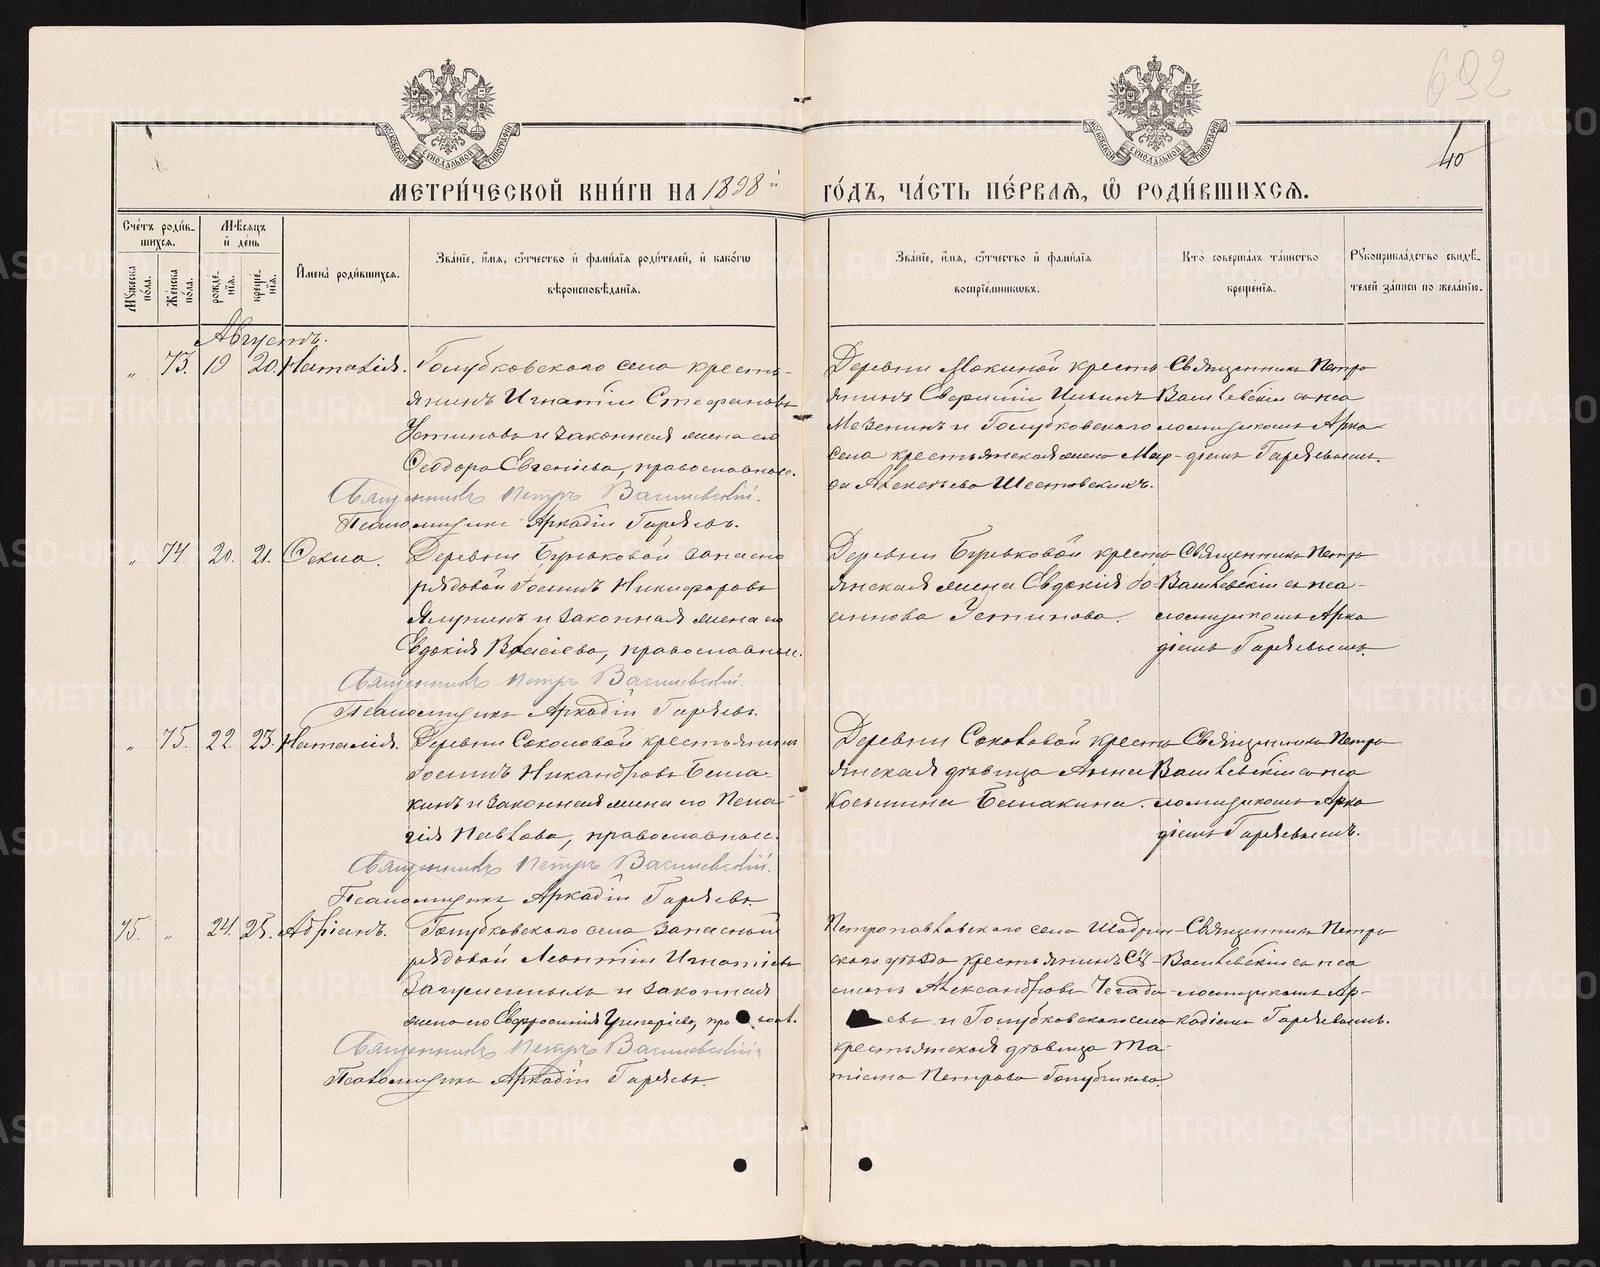 692
40
МОСКОВСКОЙ СѴНОДАЛЬНОЙ ТИПОГРАФІИ
МОСКОВСКОЙ СѴНОДАЛЬНОЙ ТИПОГРАФІИ
МЕТРИ́ЧЕСКОЙ КНИ́ГИ НА 1898й ГО́ДЪ, ЧА́СТЬ ПЕ́РВАѦ, Ѡ РОДИ́ВШИХСѦ.
Сче́тъ роди́в-
шихсѧ.
Мѣ́сѧцъ
и де́нь
Му́жеска по́ла.
Же́нска по́ла.
рожде́нїѧ.
креще́нїѧ.
И́мена̀ роди́вшихсѧ.
Зва́нїе, и́мѧ, ѻ́тчество и фами́лїѧ роди́телей, и како́гѡ
вѣроисповѣ́данїѧ.
Зва́нїе, и́мѧ, ѻ́тчество и фами́лїѧ
воспрїе́мникѡвъ.
Кто̀ соверша́лъ та́инство
креще́нїѧ.
Рꙋкоприкла́дство свидѣ́-
телей за́писи по жела́нїю.
Августъ.
„ 73. 19 20. Наталія.
Голубковскаго села кресть-
янинъ Игнатій Стефановъ
Устиновъ и законная жена его
Ѳеодора Евгеніева, православные.
Священникъ Петръ Василевскій.
Псаломщикъ Аркадій Гаряевъ.
Деревни Мокиной кресть-
янинъ Ильинъ
Мезенинъ и Голубковскаго
села крестьянская жена Мар-
ѳа Алексѣева Шестовскихъ.
Священникъ Петръ
Василевскій съ пса
ломщикомъ Арка-
діемъ Гаряевымъ.
„ 74. 20. 21. Ѳекла.
Деревни Бучковой запасно
рядовой Іосифъ Никифоровъ
Ялунинъ и законная жена его
Евдокія православные.
Священникъ Петръ Василевскій.
Псаломщикъ Аркадій Гаряевъ.
Деревни Бучковой кресть
янская жена Евдокія Іо-
сифова Устинова.
Священникъ Петръ
Василевскій съ пса-
ломщикомъ Арка
діемъ Гаряевымъ.
„ 75. 22. 23. Наталія.
Деревни Соколовой крестьянинъ
Іосифъ Никандровъ Беша-
кинъ и законная жена его Пела-
гія Павлова, православные.
Священникъ Петръ Василевскій.
Псаломщикъ Аркадій Гаряевъ.
Деревни Соколовой кресть
янская дѣвица Анна
Косьмина Бешакина.
Священникъ Петръ
Василевскій съ пса
ломщикомъ Арка
діемъ Гаряевымъ.
75. „ 24. 25. Адріанъ.
Голубковскаго села запасный
рядовой Леонтій Игнатіевъ
Загуменныхъ и законная
жена его Евфросинія Григоріева, правосл.
Священникъ Петръ Василевскій.
Псаломщикъ Аркадій Гаряевъ.
Петропавловскаго села Шадрин-
скаго уѣзда крестьянинъ
Александровъ
евъ и Голубковскаго села
крестьянская дѣвица Та-
тіана Петрова Голубчикова.
Священникъ Петръ
Василевскій съ пса
ломщикомъ Ар-
кадіемъ Гаряевымъ.
METRIKI.GASO-URAL.RU